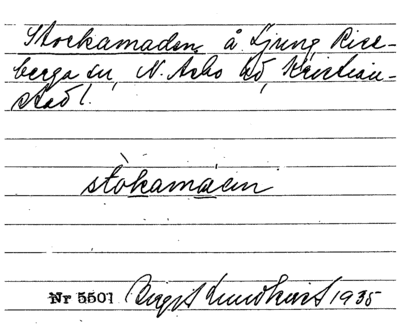 Stockamaden, å Ljung, Rise-
berga sn, N. Åsbo hd, Kristian-
stad l.
stòkamáen
Nr 5501 Birgit Lundkvist 1935